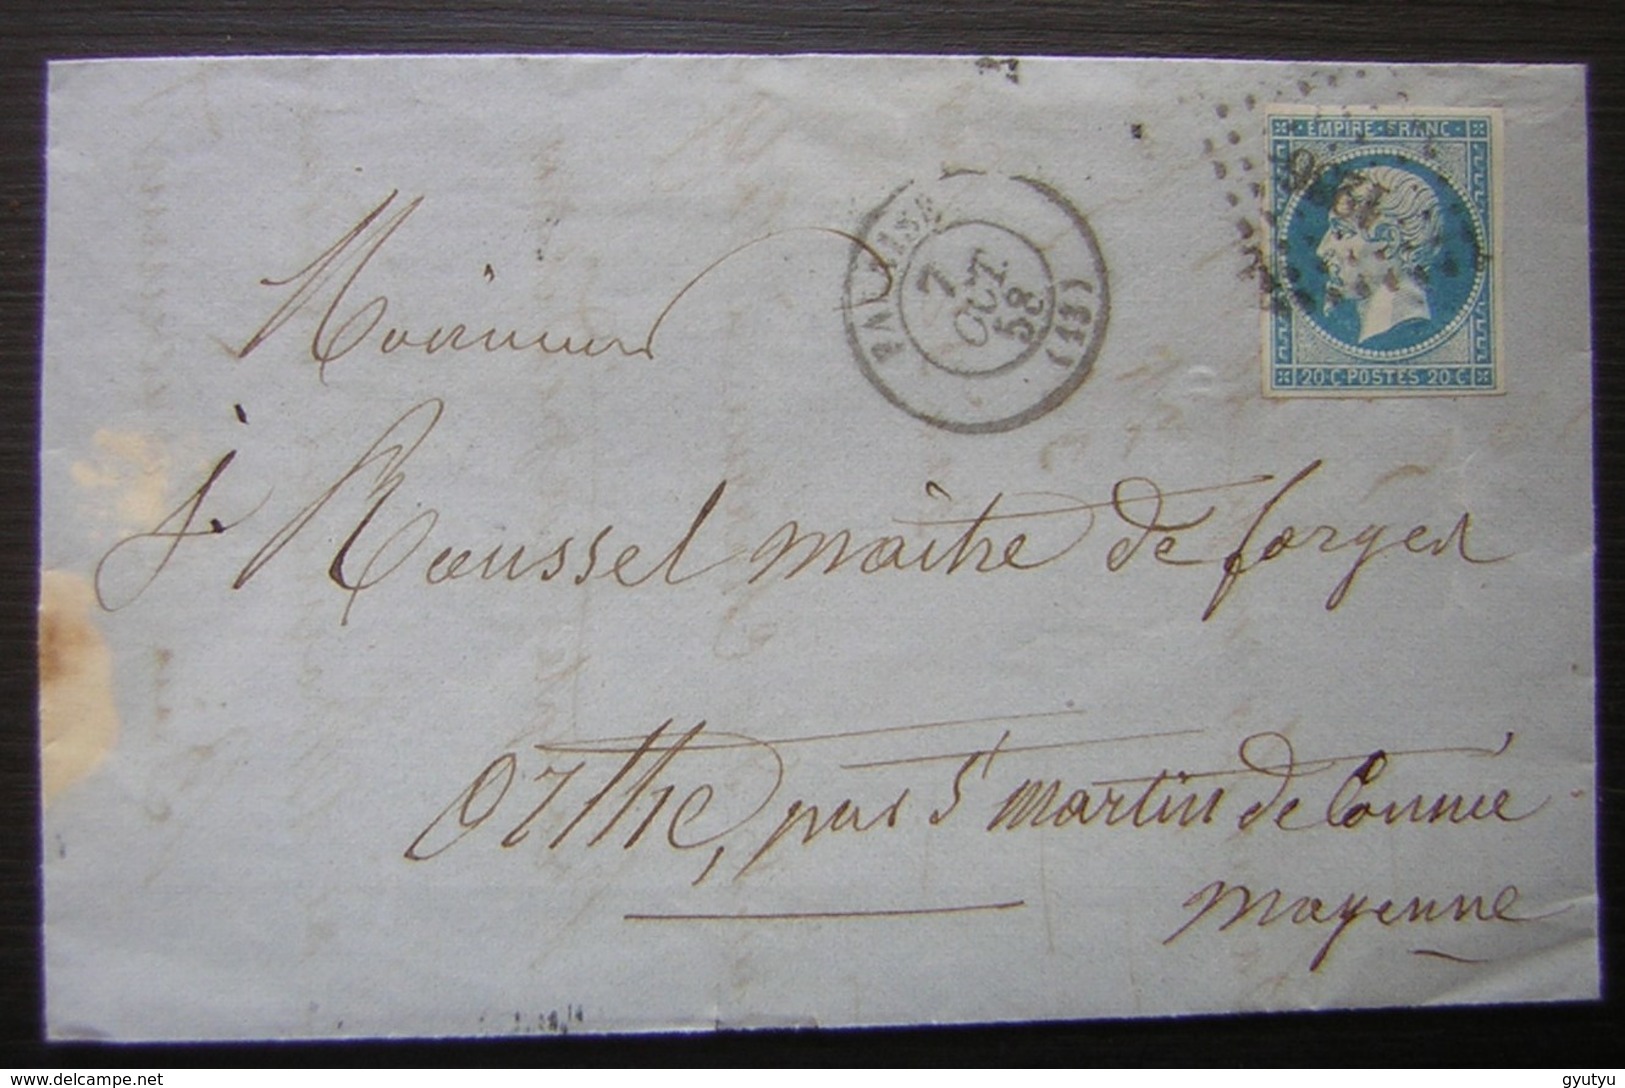 EMPIRE FRANC
20 C POSTES 20 C
FALAISE
7
OCT.
58
Monsieur
J. Roussel maître de forges
Orthe, par St Martin de Connée
Mayenne
delcampe.net
gyutyu